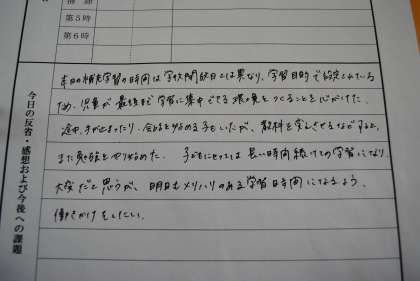 第5時
第6時
今日の反省・感想および今後への課題
本日の補充学習の時間は学校開放日とは異なり、学習目的で設定されている
ため、児童が最後まで学習に集中できる環境をつくることを心がけた。
途中、手が止まったり、会話を始める子もいたが、教科を変えさせるなどすると、
また勉強をやり始めた。子どもにとっては長い時間続けての学習になり
大変だと思うが、明日もメリハリのある学習時間になるよう、
働きかけをしたい。